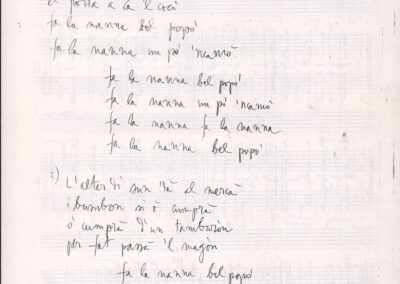 la nanna bel popò
fa la nanna un pò 'ncamò
fa la nanna bel popò
fa la nanna un pò 'ncamò
fa la nanna fa la nanna
fa la nanna bel popò
2) L'alter dì sun 'dà al mercà
i bumbon si ò cumprà
ò cumprà d'un tamburon
per fat passà 'l magon
fa la nanna bel popò